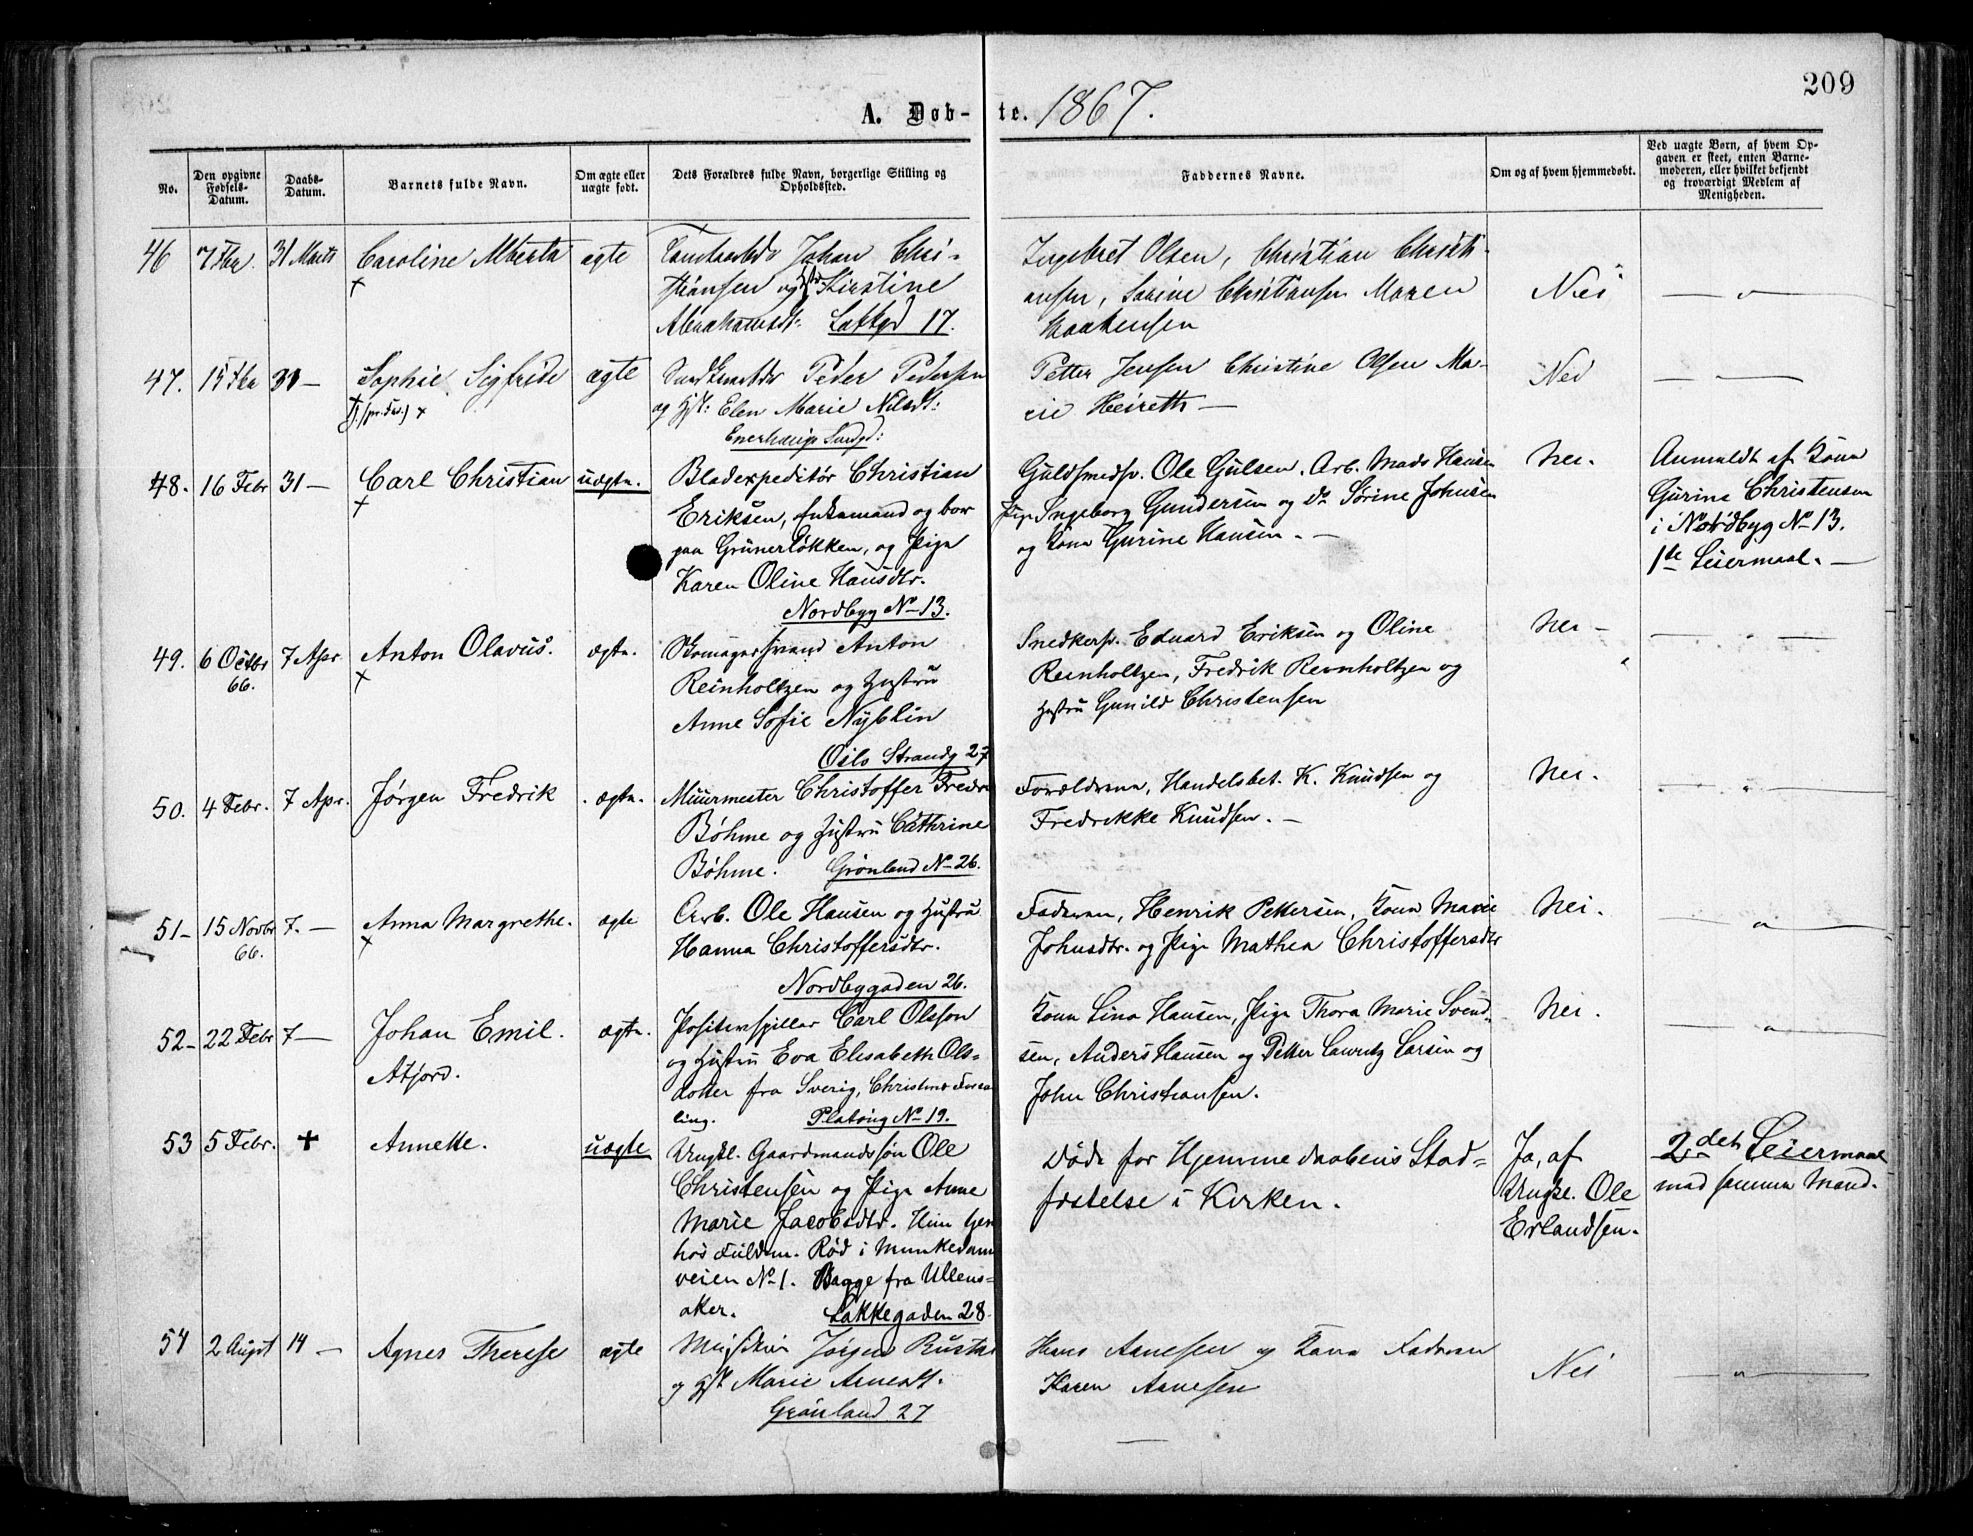 209
A. Døb-te. 1867.
No.
Den opgivne Fødsels-Datum.
Daabs-Datum.
Barnets fulde Navn.
Om ægte eller uægte født.
Dets Forældres fulde Navn, borgerlige Stilling og Opholdssted.
Faddernes Navne.
Om og af hvem hjemmedøbt.
Ved uægte Børn, af hvem Opgaven er skeet, enten Barnemoderen, eller hvilket bekjendt og troværdigt Medlem af Menigheden.
46 7 Fbr. 31 Marts Caroline Alberta ægte
Johan Chri-
stiansen og Hstr Kirstine
Abrahamsdt: Lakkgd 17.
Ingebret Olsen, Christian Christi-
ansen, Sorine Christiansen Maren
Haakensen
Nei
47. 15 Fbr 31 — Sophie Sigfride ægte
Peder Pedersen
og Hst: Elen Marie Nilsdt:
Enerhaug
Petter Jensen Christine Olsen Ma-
rie Heireth —
Nei
48. 16 Febr 31 — Carl Christian uægte.
Bladexpeditør Christian
Eriksen, Enkemand og bor
paa Grünerløkken, og Pige
Karen Oline Hansdtr.
Nordbyg No 13.
Guldsmedsv. Ole Gulsen. Arb. Mads Hansen
Pige Ingeborg Gundersen og Do Sørine Johnsen
og Kona Gurine Hansen. —
Nei.
Anmeldt af Kona
Gurine Christensen
i Nordbyg No 13.
1ste Leiermaal. —
49. 6 Octbr 66. 7 Apr Anton Olavus. ægte.
Skomagersvend Anton
Reinholtzen og Hustru
Anne Sofie Nyblin
Oslo Strandg 27
Snedkersv. Eduard Eriksen og Oline
Reinholtzen, Fredrik Reinholtzen og
Hustru Gunild Christensen
Nei —
50. 4 Febr. 7 Apr. Jørgen Fredrik ægte.
Muurmester Christoffer Fredr
Bøhme og Hustru Cathrine
Bøhme. Grønland No 26.
Forældrene, Handelsbet. K. Knudsen og
Fredrikke Knudsen. —
Nei.
51 — 15 Novbr 66. 7. — Anna Margrethe. ægte
Arb. Ole Hansen og Hustru
Hanna Christoffersdtr.
Nordbygaden 26.
Faderen, Henrik Pettersen, Kona Marie
Johnsdtr. og Pige Mathea Christoffersdtr
Nei.
52 — 22 Febr 7 — Johan Emil. ægte.
Atjord.
Positivspiller Carl Olsson
og Hustru Eva Elisabeth Ols-
dotter fra Sverig,
ling. Platoug No 19.
Kona Lina Hansen, Pige Thora Marie Svend-
sen, Anders Hansen og Petter Lauritz Larsen og
John Christiansen.
Nei.
53 5 Febr. + Annette. uægte
Ungkl. Gaardmandssøn Ole
Christensen og Pige Anne
Marie Jacobsdtr. Hun tjen
hos Fuldm. Rød i Munkedams
veien No 1. Begge fra Ullens-
aker. Lakkegaden 28.
Døde før Hjemmedaabens Stad-
fæstelse i Kirken.
Ja, af
Ungkl. Ole
Erlandsen.
2det Leiermaal
med samme Mand.
54 2 Augst 14 — Agnes Therese ægte
Jørgen Rustad
og Hst Marie Arnesdt.
Grønland 27
Hans Arnesen og Kone Faderen
Karen Arnesen
Nei